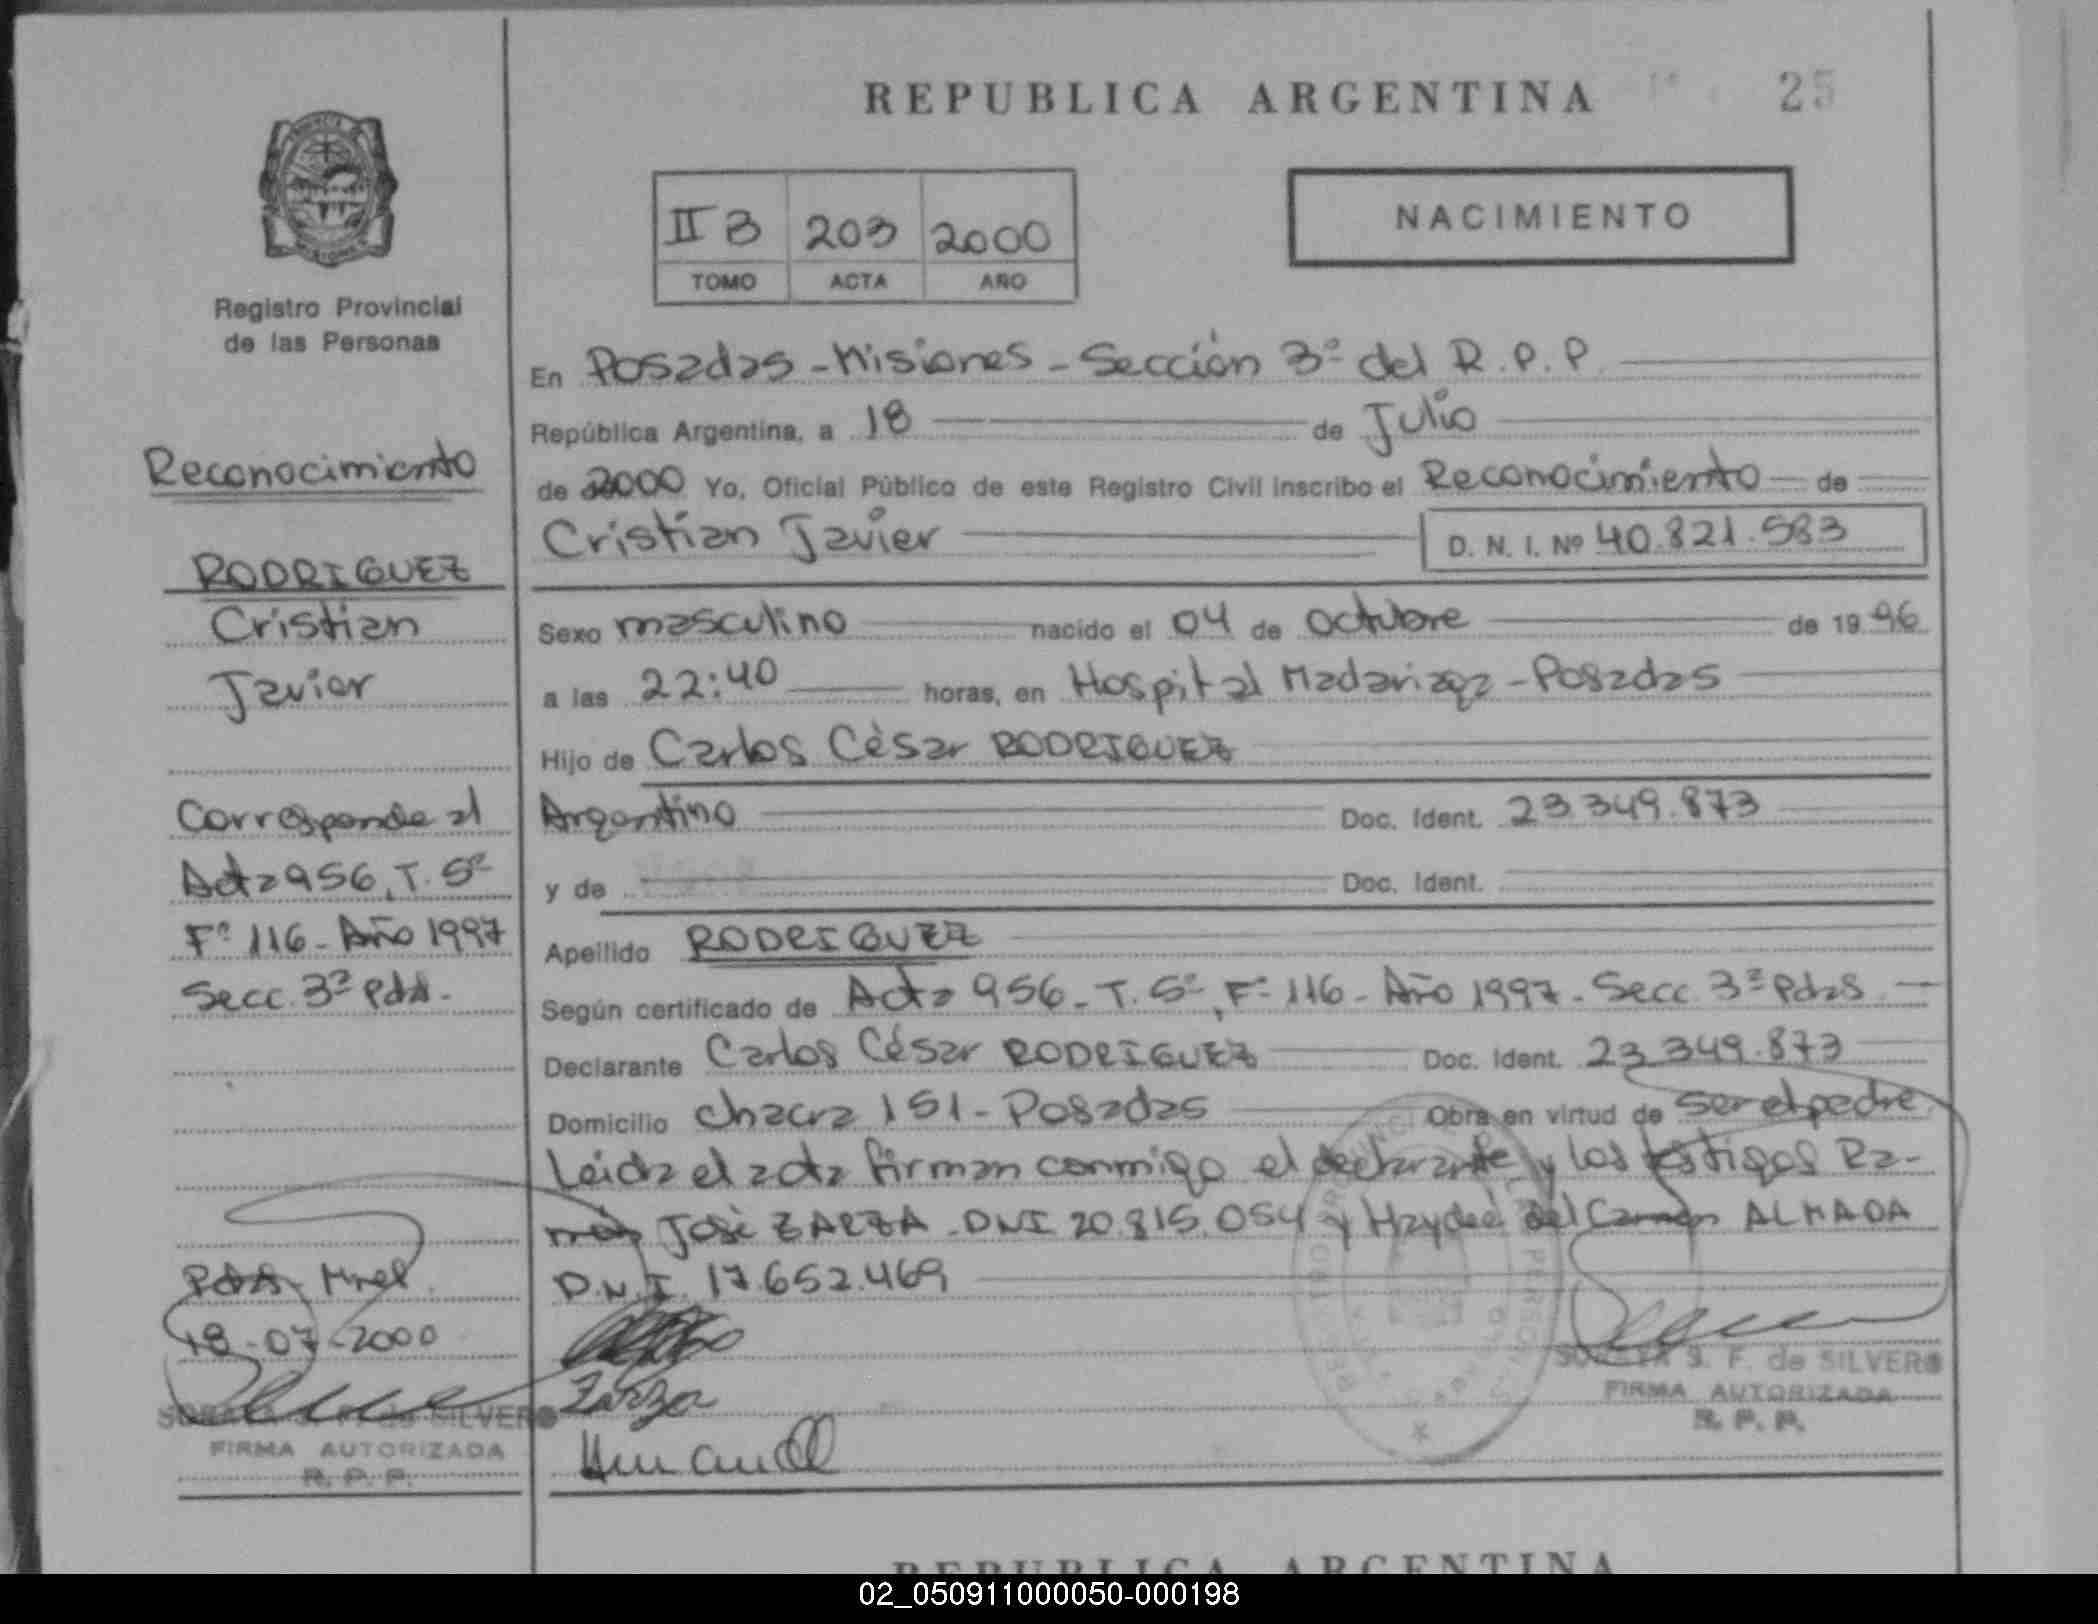 REPUBLICA ARGENTINA
25
II B 203 2000
TOMO ACTA AÑO
NACIMIENTO
Registro Provincial
de las Personas
Reconocimiento
RODRIGUEZ
Cristian
Javier
Corresponde al
Acta 956, T. 5º
Fº 116 - Año 1997
Secc. 3ª Pdas.
Pdas. Mnes.
18-07-2000
SILVERO
FIRMA AUTORIZADA
R. P. P.
En Posadas - Misiones - Sección 3º del R.P.P.
República Argentina, a 18 de Julio
de 2000 Yo, Oficial Público de este Registro Civil inscribo el Reconocimiento de
Cristian Javier D. N. I. Nº 40.821.583
Sexo masculino nacido el 04 de octubre de 1996
a las 22:40 horas, en Hospital Madariaga - Posadas
Hijo de Carlos César RODRIGUEZ
Argentino Doc. Ident. 23.349.873
y de Doc. Ident.
Apellido RODRIGUEZ
Según certificado de Acta 956 - T. 5º, Fº 116 - Año 1997 - Secc. 3ª Pdas
Declarante Carlos César RODRIGUEZ Doc. Ident. 23.349.873
Domicilio Chacra 151 - Posadas Obra en virtud de ser el padre
Leida el acta firman conmigo el declarante y los testigos Ra-
món José ZARZA - DNI 20.815.054 y Haydeé del Carmen ALMADA
D.N.I. 17.652.469
Zarza
S. F. de SILVERO
FIRMA AUTORIZADA
R. P. P.
REPUBLICA ARGENTINA
02_050911000050-000198